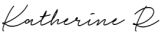 Katherine R